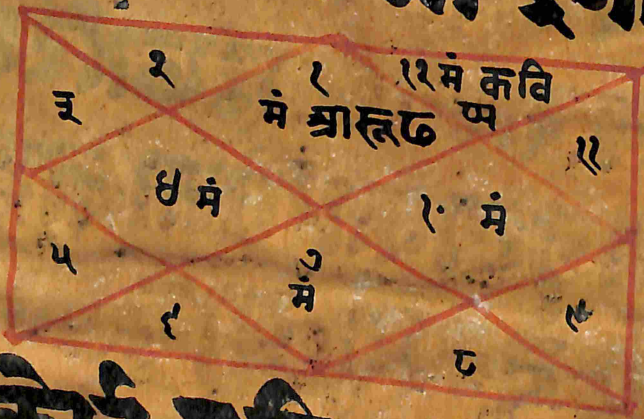 २ १ १२ मं कवि
३ मं श्रारूढ ष्प ११
४ मं १० मं
५ ७
६ मं ९
८